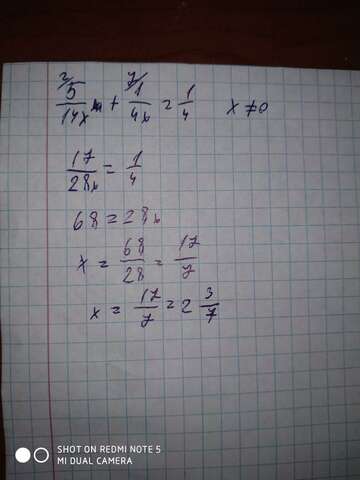 2/ 5/14x + 7/ 1/4x = 1/4 x ≠ 0
17/28x = 1/4
68 = 28x
x = 68/28 = 17/7
x = 17/7 = 2 3/7
SHOT ON REDMI NOTE 5
MI DUAL CAMERA